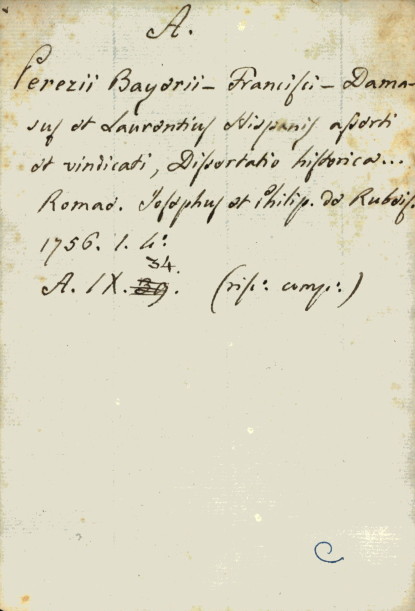 A.
Perezii Bayerii – Francisci – Dama-
sus et Laurentius Hispanis asserti
et vindicati, Dissertatio historica...
Romae. Josephus et Philip. de Rubeis.
1756. 1. 4.º
34.
A. IX. 39. (risº. compº.)
C